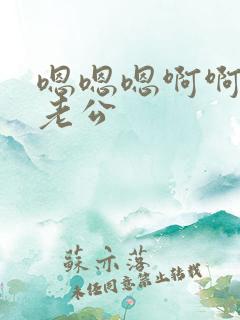 嗯嗯嗯啊啊
老公
蘇亦落
未经同意禁止转载